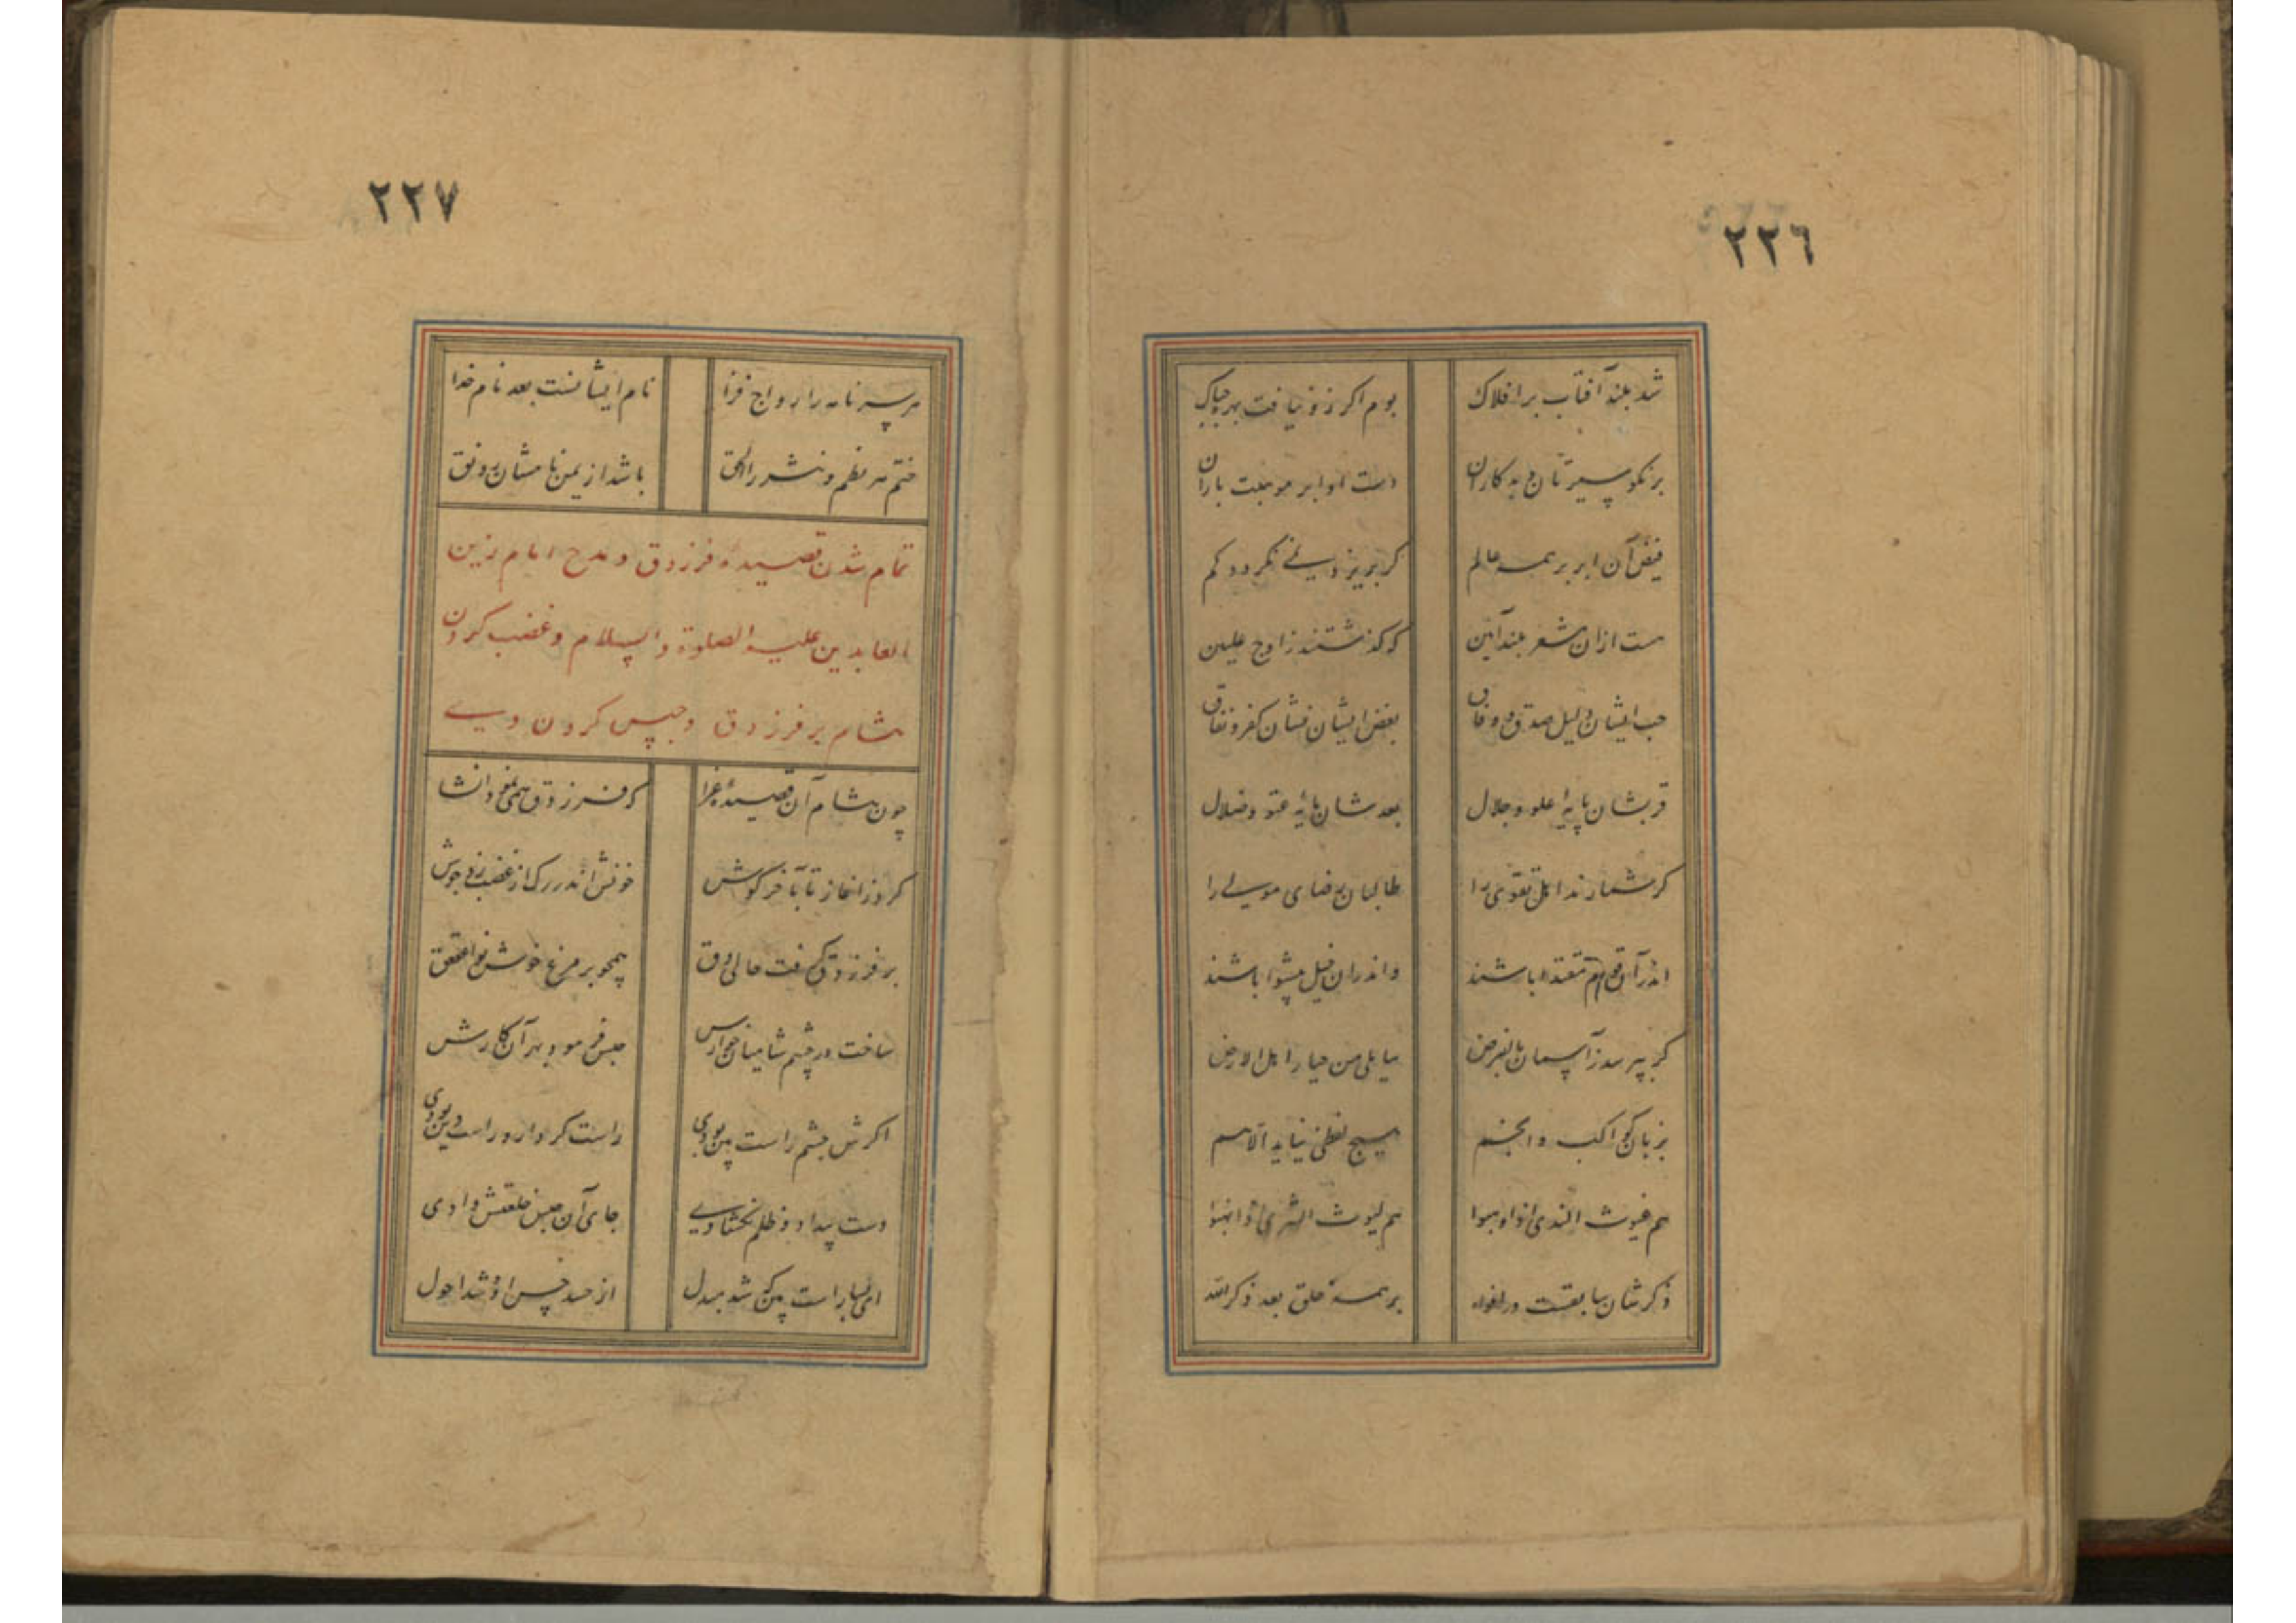 ٢٢٦
شد بلند آفتاب بر افلاک بوم اگر زو نیافت بهره چه باک
بر نکو سیرتان و بدکاران دست او ابر موهبت باران
فیض آن ابر بر همه عالم گر بریزد نمی نگردد کم
هست ازان معشر بلند آیین که گذشتند ز اوج علیین
حب ایشان دلیل صدق و وفاق بغض ایشان نشان کفر و نفاق
قربشان پایهٔ علو و جلال بعدشان مایهٔ عتو و ضلال
گر شمارند اهل تقوی را طالبان رضای مولی را
اندر آن قوم مقتدا باشند واندران خیل پیشوا باشند
گر بپرسد ز آسمان بالفرض سایلی من خیار اهل الارض
بزبان کواکب و انجم هیچ لفظی نیاید الا هم
هم غیوث الندی اذا وهبوا هم لیوث الشری اذا نهبوا
ذکرشان سابقست در افواه بر همه خلق بعد ذکر الله
٢٢٧
سر هر نامه را رواج فزا نام ایشانست بعد نام خدا
ختم هر نظم و نثر را الحق باشد از یمن نامشان رونق
تمام شدن قصیدهٔ فرزدق و مدح امام زین
العابدین علیه الصلوة والسلام و غضب کردن
هشام بر فرزدق و حبس کردن وی
چون هشام آن قصیدهٔ غرا که فرزدق همی نمود انشا
کرد ز آغاز تا بآخر گوش خونش اندر رگ از غضب زد جوش
بر فرزدق گرفت حالی دق همچو بر مرغ خوش نوا عقعق
ساخت در چشم شامیان خوارش حبس فرمود بهر آن کارش
اگرش چشم راست بین بودی راست کردار و راست دین بودی
دست بیداد و ظلم نگشادی جای آن حبس خلعتش دادی
ای بسا راست بین که شد مبدل از حسد حس او و شد احول